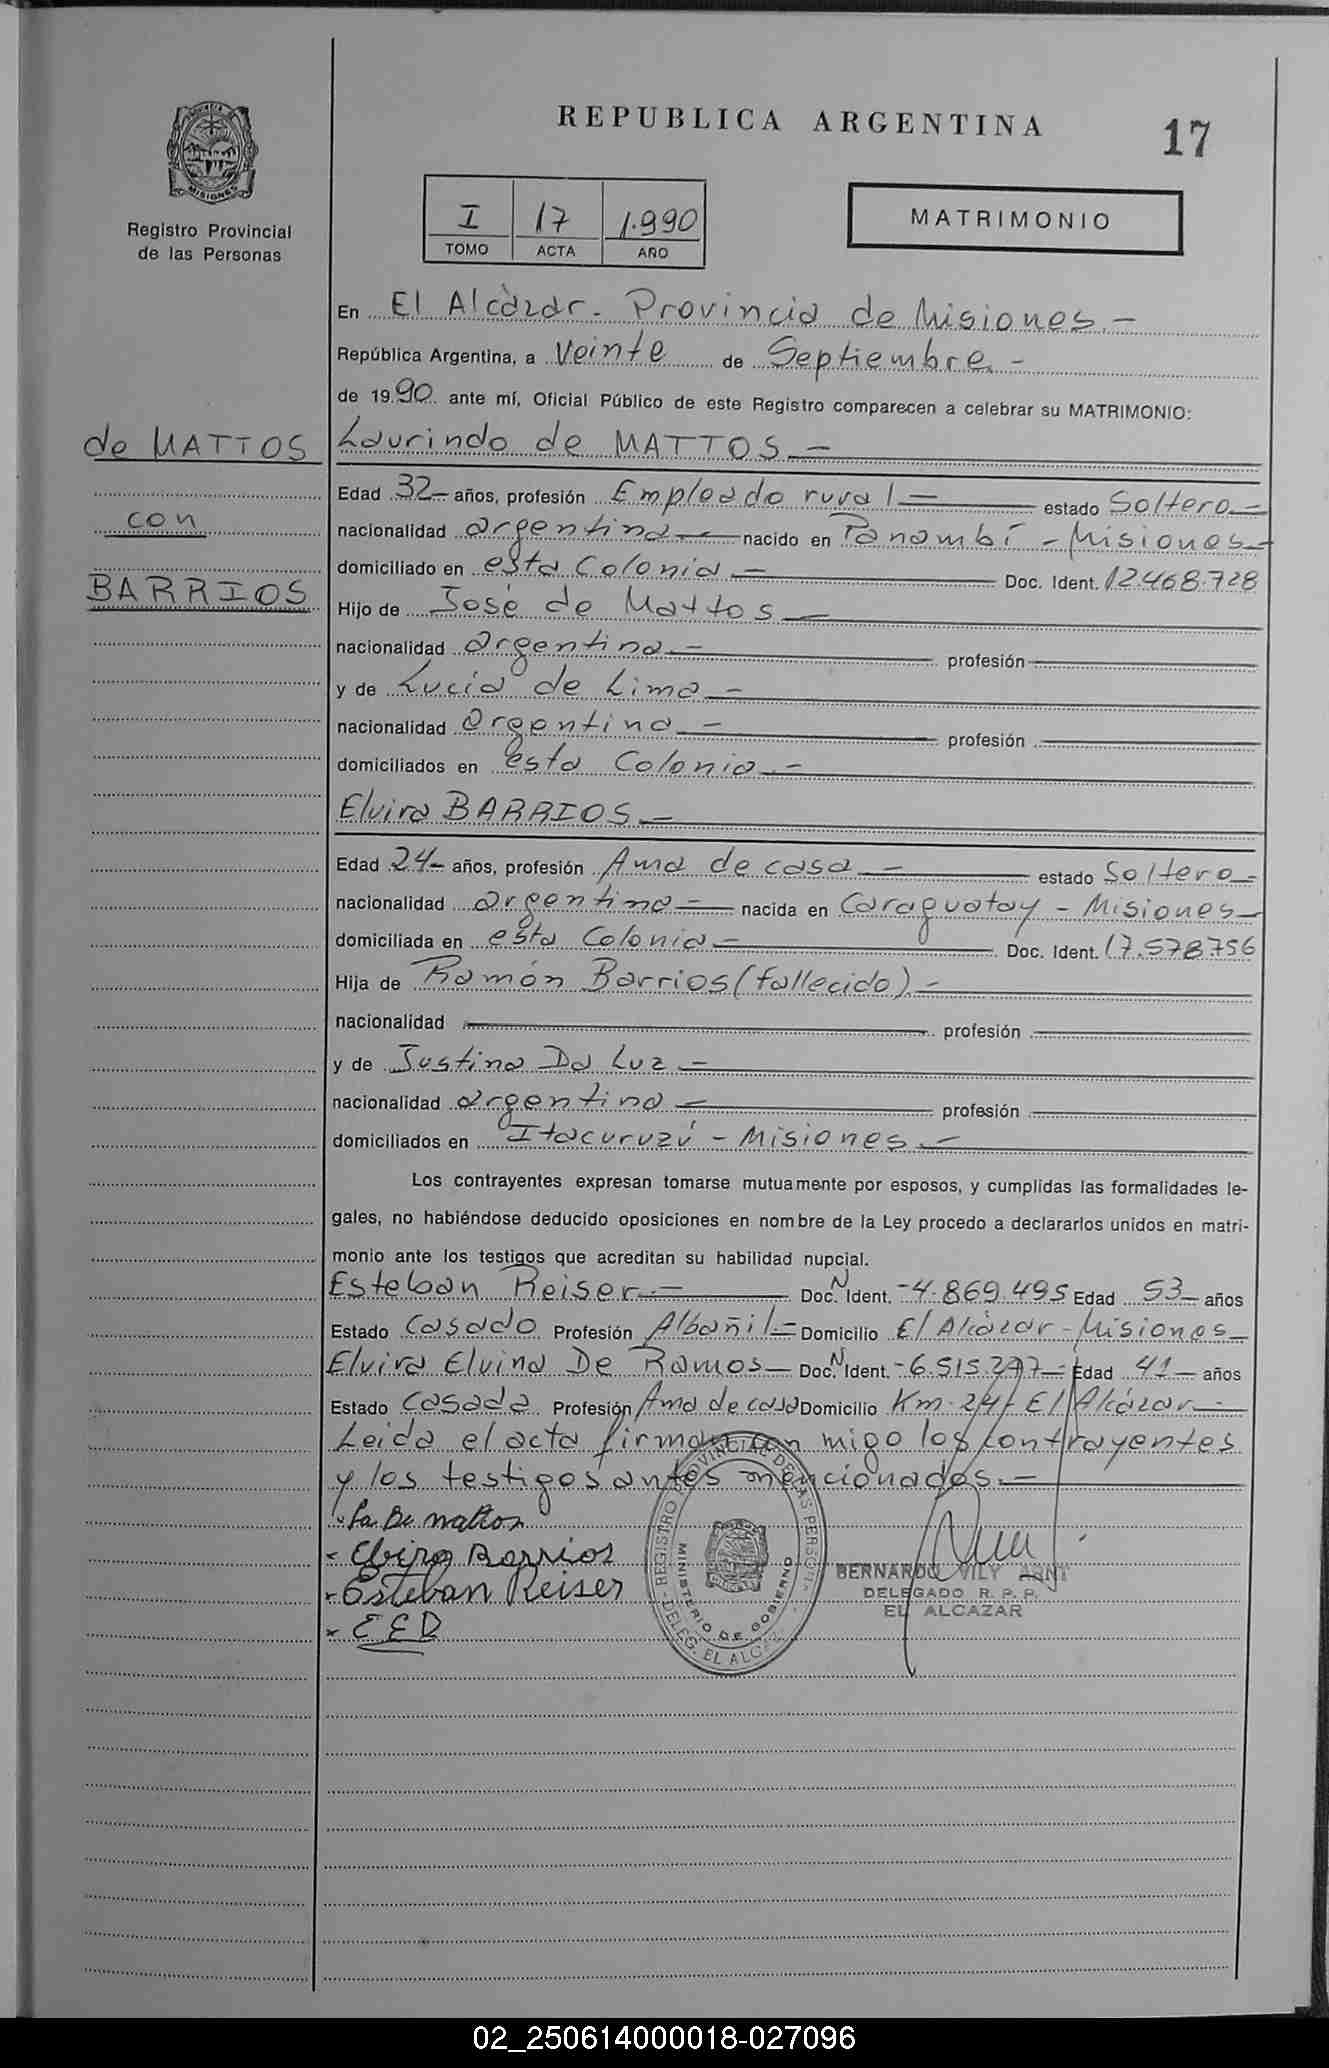 REPUBLICA ARGENTINA
17
PROVINCIA DE
MISIONES
Registro Provincial
de las Personas
I 17 1.990
TOMO ACTA AÑO
MATRIMONIO
En El Alcàzar - Provincia de Misiones.-
República Argentina, a Veinte de Septiembre.-
de 1990 ante mí, Oficial Público de este Registro comparecen a celebrar su MATRIMONIO:
de MATTOS
con
BARRIOS
Laurindo de MATTOS.-
Edad 32- años, profesión Empleado rural- estado Soltero.-
nacionalidad argentina.- nacido en Panambí - Misiones.-
domiciliado en esta Colonia.- Doc. Ident. 12.468.728
Hijo de José de Mattos.-
nacionalidad argentina.- profesión
y de Lucia de Lima.-
nacionalidad argentina.- profesión
domiciliados en esta Colonia.-
Elvira BARRIOS.-
Edad 24- años, profesión Ama de casa.- estado Soltera.-
nacionalidad argentina.- nacida en Caraguatay - Misiones.-
domiciliada en esta Colonia.- Doc. Ident. 17.578.756
Hija de Ramón Barrios (fallecido).-
nacionalidad profesión
y de Justina Da Luz.-
nacionalidad argentina.- profesión
domiciliados en Itacuruzú - Misiones.-
Los contrayentes expresan tomarse mutuamente por esposos, y cumplidas las formalidades le-
gales, no habiéndose deducido oposiciones en nombre de la Ley procedo a declararlos unidos en matri-
monio ante los testigos que acreditan su habilidad nupcial.
Esteban Reiser.- Doc. N Ident. -4.869.495 Edad 53- años
Estado Casado Profesión Albañil- Domicilio El Alcàzar - Misiones-
Elvira Elvina De Ramos- Doc. N Ident. -6.515.297- Edad 41- años
Estado Casada Profesión Ama de casa Domicilio Km. 24- El Alcázar.-
Leida el acta firman con migo los contrayentes
y los testigos antes mencionados.-
La De mattos
Elvira Barrios
Esteban Reiser
E E D
REGISTRO PROVINCIAL DE LAS PERSONAS
MINISTERIO DE GOBIERNO
DELEG. EL ALCAZAR
BERNARDO VILY ARNT
DELEGADO R. P. P.
EL ALCAZAR
02_250614000018-027096